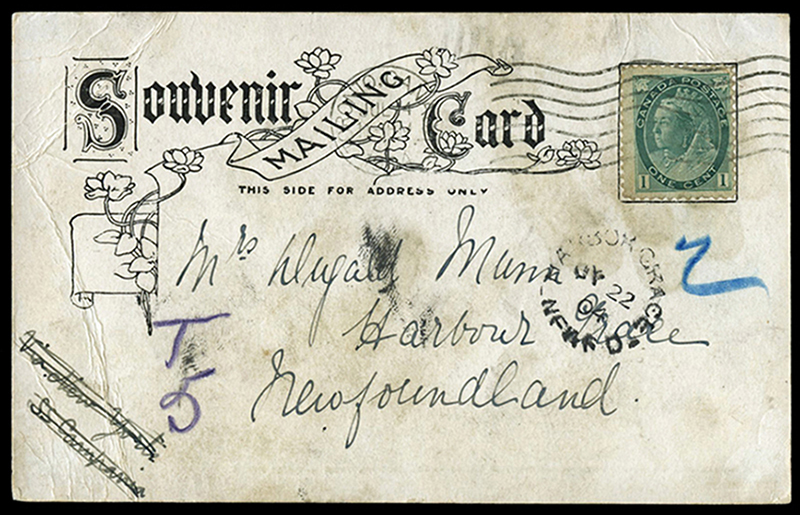 Souvenir
MAILING
Card
THIS SIDE FOR ADDRESS ONLY
CANADA POSTAGE
ONE CENT
1 1
Mrs Dugald Munn
Harbour Grace
Newfoundland.
HARBOUR GRACE
22
04
NEWF'D
2
T
5
Via New York
SS Campania